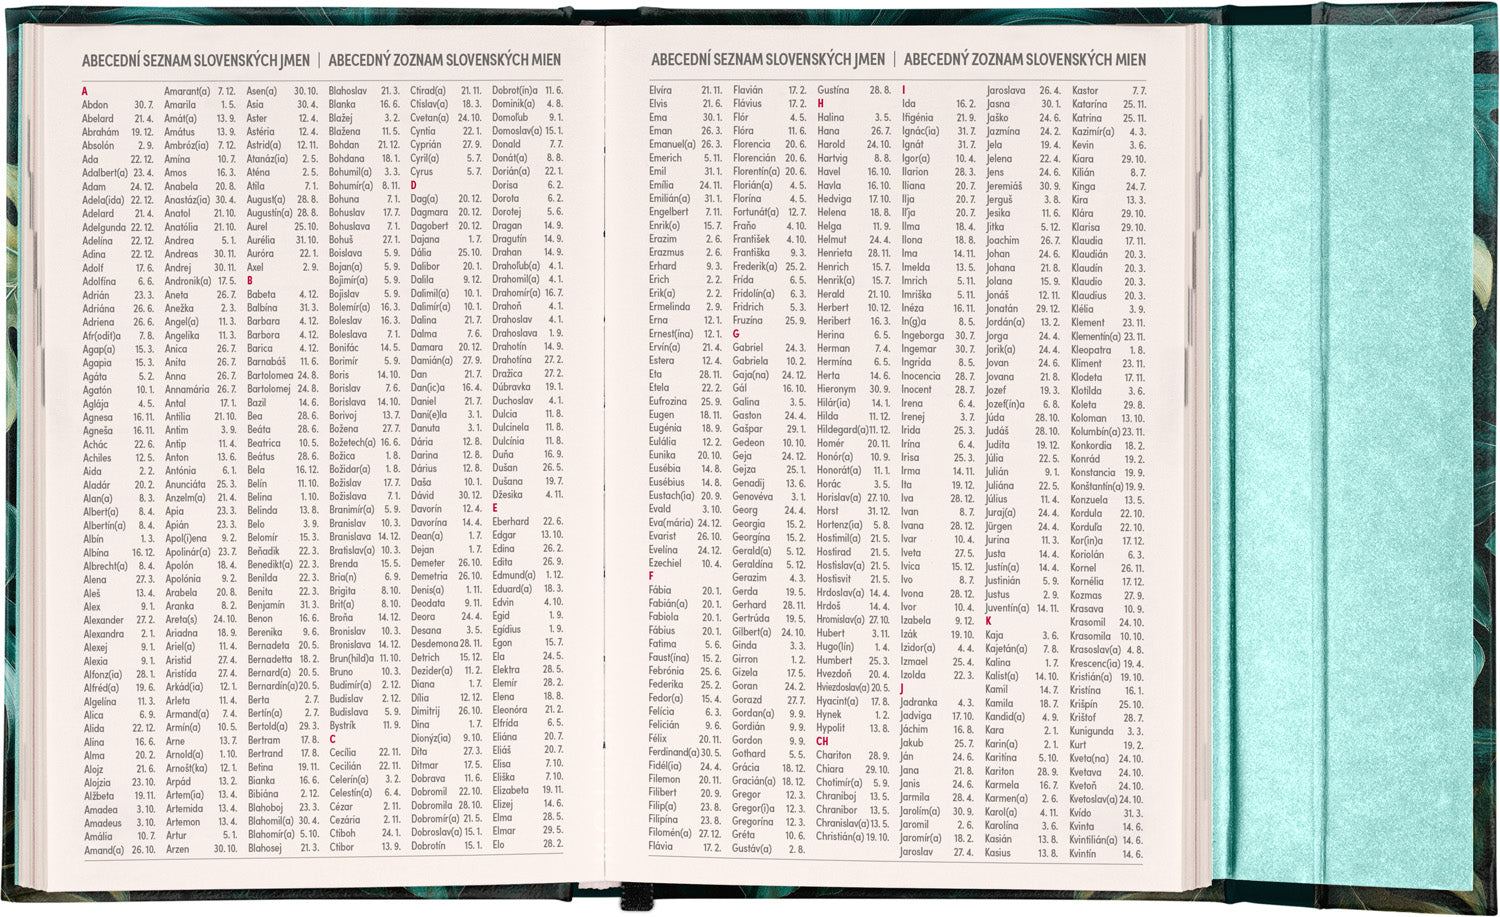 ABECEDNÍ SEZNAM SLOVENSKÝCH JMEN | ABECEDNÝ ZOZNAM SLOVENSKÝCH MIEN
A
Abdon 30. 7.
Abelard 21. 4.
Abrahám 19. 12.
Absolón 2. 9.
Ada 22. 12.
Adalbert(a) 23. 4.
Adam 24. 12.
Adela(ida) 22. 12.
Adelard 21. 4.
Adelgunda 22. 12.
Adelína 22. 12.
Adina 22. 12.
Adolf 17. 6.
Adolfína 6. 6.
Adrián 23. 3.
Adriána 26. 6.
Adriena 26. 6.
Afr(odit)a 7. 8.
Agap(a) 15. 3.
Agapia 15. 3.
Agáta 5. 2.
Agatón 10. 1.
Aglája 4. 5.
Agnesa 16. 11.
Agneša 16. 11.
Achác 22. 6.
Achiles 12. 5.
Aida 2. 2.
Aladár 20. 2.
Alan(a) 8. 3.
Albert(a) 8. 4.
Albertín(a) 8. 4.
Albín 1. 3.
Albína 16. 12.
Albrecht(a) 8. 4.
Alena 27. 3.
Aleš 13. 4.
Alex 9. 1.
Alexander 27. 2.
Alexandra 2. 1.
Alexej 9. 1.
Alexia 9. 1.
Alfonz(ia) 28. 1.
Alfréd(a) 19. 6.
Algelína 11. 3.
Alica 6. 9.
Alida 22. 12.
Alina 16. 6.
Alma 20. 2.
Alojz 21. 6.
Alojzia 23. 10.
Alžbeta 19. 11.
Amadea 3. 10.
Amadeus 3. 10.
Amália 10. 7.
Amand(a) 26. 10.
Amarant(a) 7. 12.
Amarila 1. 5.
Amát(a) 13. 9.
Amátus 13. 9.
Ambróz(ia) 7. 12.
Amína 10. 7.
Amos 16. 3.
Anabela 20. 8.
Anastáz(ia) 30. 4.
Anatol 21. 10.
Anatólia 21. 10.
Andrea 5. 1.
Andreas 30. 11.
Andrej 30. 11.
Andronik(a) 17. 5.
Aneta 26. 7.
Anežka 2. 3.
Angel(a) 11. 3.
Angelika 11. 3.
Anica 26. 7.
Anita 26. 7.
Anna 26. 7.
Annamária 26. 7.
Antal 17. 1.
Antília 21. 10.
Antim 3. 9.
Antip 11. 4.
Anton 13. 6.
Antónia 6. 1.
Anunciáta 25. 3.
Anzelm(a) 21. 4.
Apia 23. 3.
Apián 23. 3.
Apol(i)ena 9. 2.
Apolinár(a) 23. 7.
Apolón 18. 4.
Apolónia 9. 2.
Arabela 20. 8.
Aranka 8. 2.
Areta(s) 24. 10.
Ariadna 18. 9.
Ariel(a) 11. 4.
Aristid 27. 4.
Aristída 27. 4.
Arkád(ia) 12. 1.
Arleta 11. 4.
Armand(a) 7. 4.
Armín(a) 10. 5.
Arne 13. 7.
Arnold(a) 1. 10.
Arnošt(ka) 12. 1.
Arpád 13. 2.
Artem(ia) 13. 4.
Artemida 13. 4.
Artemon 13. 4.
Artur 5. 1.
Arzen 30. 10.
Asen(a) 30. 10.
Asia 30. 4.
Aster 12. 4.
Astéria 12. 4.
Astrid(a) 12. 11.
Atanáz(ia) 2. 5.
Aténa 2. 5.
Atila 7. 1.
August(a) 28. 8.
Augustín(a) 28. 8.
Aurel 25. 10.
Aurélia 31. 10.
Auróra 22. 1.
Axel 2. 9.
B
Babeta 4. 12.
Balbína 31. 3.
Barbara 4. 12.
Barbora 4. 12.
Barica 4. 12.
Barnabáš 11. 6.
Bartolomea 24. 8.
Bartolomej 24. 8.
Bazil 14. 6.
Bea 28. 6.
Beáta 28. 6.
Beatrica 10. 5.
Beátus 28. 6.
Bela 16. 12.
Belín 11. 10.
Belina 1. 10.
Belinda 13. 8.
Belo 3. 9.
Belomír 15. 3.
Beňadik 22. 3.
Benedikt(a) 22. 3.
Benilda 22. 3.
Benita 22. 3.
Benjamín 31. 3.
Benon 16. 6.
Berenika 9. 6.
Bernadeta 20. 5.
Bernadetta 18. 2.
Bernard(a) 20. 5.
Bernardín(a) 20. 5.
Berta 2. 7.
Bertín(a) 2. 7.
Bertold(a) 29. 3.
Bertram 17. 8.
Bertrand 17. 8.
Betina 19. 11.
Bianka 16. 6.
Bibiána 2. 12.
Blahoboj 23. 3.
Blahomil(a) 30. 4.
Blahomír(a) 5. 10.
Blahosej 21. 3.
Blahoslav 21. 3.
Blanka 16. 6.
Blažej 3. 2.
Blažena 11. 5.
Bohdan 21. 12.
Bohdana 18. 1.
Bohumil(a) 3. 3.
Bohumír(a) 8. 11.
Bohuna 7. 1.
Bohuslav 17. 7.
Bohuslava 7. 1.
Bohuš 27. 1.
Boislava 5. 9.
Bojan(a) 5. 9.
Bojimír(a) 5. 9.
Bojislav 5. 9.
Bolemír(a) 16. 3.
Boleslav 16. 3.
Boleslava 7. 1.
Bonifác 14. 5.
Borimír 5. 9.
Boris 14. 10.
Borislav 7. 6.
Borislava 14. 10.
Borivoj 13. 7.
Božena 27. 7.
Božetech(a) 16. 6.
Božica 1. 8.
Božidar(a) 1. 8.
Božislav 17. 7.
Božislava 7. 1.
Branimír(a) 5. 9.
Branislav 10. 3.
Branislava 14. 12.
Bratislav(a) 10. 3.
Brenda 15. 5.
Bria(n) 6. 9.
Brigita 8. 10.
Brit(a) 8. 10.
Broňa 14. 12.
Bronislav 10. 3.
Bronislava 14. 12.
Brun(hild)a 11. 10.
Bruno 10. 3.
Budimír(a) 2. 12.
Budislav 2. 12.
Budislava 5. 9.
Bystrik 11. 9.
C
Cecília 22. 11.
Cecilián 22. 11.
Celerín(a) 3. 2.
Celestín(a) 6. 4.
Cézar 2. 11.
Cezária 2. 11.
Ctiboh 24. 1.
Ctibor 13. 9.
Ctirad(a) 21. 11.
Ctislav(a) 18. 3.
Cvetan(a) 24. 10.
Cyntia 22. 1.
Cyprián 27. 9.
Cyril(a) 5. 7.
Cyrus 5. 7.
D
Dag(a) 20. 12.
Dagmara 20. 12.
Dagobert 20. 12.
Dajana 1. 7.
Dália 25. 10.
Dalibor 20. 1.
Dalila 9. 12.
Dalimil(a) 10. 1.
Dalimír(a) 10. 1.
Dalina 21. 7.
Dalma 7. 6.
Damara 20. 12.
Damián(a) 27. 9.
Dan 21. 7.
Dan(ic)a 16. 4.
Daniel 21. 7.
Dani(e)la 3. 1.
Danuta 3. 1.
Dária 12. 8.
Darina 12. 8.
Dárius 12. 8.
Daša 10. 1.
Dávid 30. 12.
Davorín 12. 4.
Davorína 14. 4.
Dean(a) 1. 7.
Dejan 1. 7.
Demeter 26. 10.
Demetria 26. 10.
Denis(a) 1. 11.
Deodata 9. 11.
Deora 24. 4.
Desana 3. 5.
Desdemona 28. 11.
Detrich 15. 12.
Dezider(a) 11. 2.
Diana 1. 7.
Dília 12. 12.
Dimitrij 26. 10.
Dina 1. 7.
Dionýz(ia) 9. 10.
Dita 27. 3.
Ditmar 17. 5.
Dobrava 11. 6.
Dobromil 22. 10.
Dobromila 28. 10.
Dobromír(a) 21. 5.
Dobroslav(a) 15. 1.
Dobrotín 15. 1.
Dobrot(ín)a 11. 6.
Dominik(a) 4. 8.
Domoľub 9. 1.
Domoslav(a) 15. 1.
Donald 7. 7.
Donát(a) 8. 8.
Dorián(a) 22. 1.
Dorisa 6. 2.
Dorota 6. 2.
Dorotej 5. 6.
Dragan 14. 9.
Dragutín 14. 9.
Drahan 14. 9.
Drahoľub(a) 4. 1.
Drahomil(a) 4. 1.
Drahomír(a) 16. 7.
Drahoň 4. 1.
Drahoslav 4. 1.
Drahoslava 1. 9.
Drahotín 14. 9.
Drahotína 27. 2.
Dražica 27. 2.
Dúbravka 19. 1.
Duchoslav 4. 1.
Dulcia 11. 8.
Dulcinela 11. 8.
Dulcínia 11. 8.
Duňa 16. 9.
Dušan 26. 5.
Dušana 19. 7.
Džesika 4. 11.
E
Eberhard 22. 6.
Edgar 13. 10.
Edina 26. 2.
Edita 26. 9.
Edmund(a) 1. 12.
Eduard(a) 18. 3.
Edvin 4. 10.
Egid 1. 9.
Egídius 1. 9.
Egon 15. 7.
Ela 24. 5.
Elektra 28. 5.
Elemír 28. 2.
Elena 18. 8.
Eleonóra 21. 2.
Elfrída 6. 5.
Eliána 20. 7.
Eliáš 20. 7.
Elisa 7. 10.
Eliška 7. 10.
Elizabeta 19. 11.
Elizej 14. 6.
Elma 28. 5.
Elmar 29. 5.
Elo 28. 2.
ABECEDNÍ SEZNAM SLOVENSKÝCH JMEN | ABECEDNÝ ZOZNAM SLOVENSKÝCH MIEN
Elvíra 21. 11.
Elvis 21. 6.
Ema 30. 1.
Eman 26. 3.
Emanuel(a) 26. 3.
Emerich 5. 11.
Emil 31. 1.
Emília 24. 11.
Emilián(a) 31. 1.
Engelbert 7. 11.
Enrik(o) 15. 7.
Erazim 2. 6.
Erazmus 2. 6.
Erhard 9. 3.
Erich 2. 2.
Erik(a) 2. 2.
Ermelinda 2. 9.
Erna 12. 1.
Ernest(ína) 12. 1.
Ervín(a) 21. 4.
Estera 12. 4.
Eta 28. 11.
Etela 22. 2.
Eufrozina 25. 9.
Eugen 18. 11.
Eugénia 18. 9.
Eulália 12. 2.
Eunika 20. 10.
Eusébia 14. 8.
Eusébius 14. 8.
Eustach(ia) 20. 9.
Evald 3. 10.
Eva(mária) 24. 12.
Evarist 26. 10.
Evelína 24. 12.
Ezechiel 10. 4.
F
Fábia 20. 1.
Fabián(a) 20. 1.
Fabiola 20. 1.
Fábius 20. 1.
Fatima 5. 6.
Faust(ína) 15. 2.
Febrónia 25. 6.
Federika 25. 2.
Fedor(a) 15. 4.
Felícia 6. 3.
Felicián 9. 6.
Félix 20. 11.
Ferdinand(a) 30. 5.
Fidél(ia) 24. 4.
Filemon 20. 11.
Filibert 20. 9.
Filip(a) 23. 8.
Filipína 23. 8.
Filomén(a) 27. 12.
Flávia 17. 2.
Flavián 17. 2.
Flávius 17. 2.
Flór 4. 5.
Flóra 11. 6.
Florencia 20. 6.
Florencián 20. 6.
Florentín(a) 20. 6.
Florián(a) 4. 5.
Florína 4. 5.
Fortunát(a) 12. 7.
Fraňo 4. 10.
František 4. 10.
Františka 9. 3.
Frederik(a) 25. 2.
Frída 6. 5.
Fridolín(a) 6. 3.
Fridrich 5. 3.
Fruzína 25. 9.
G
Gabriel 24. 3.
Gabriela 10. 2.
Gaja(na) 24. 12.
Gál 16. 10.
Galina 3. 5.
Gaston 24. 4.
Gašpar 29. 1.
Gedeon 10. 10.
Geja 24. 12.
Gejza 25. 1.
Genadij 13. 6.
Genovéva 3. 1.
Georg 24. 4.
Georgia 15. 2.
Georgína 15. 2.
Gerald(a) 5. 12.
Geraldína 5. 12.
Gerazim 4. 3.
Gerda 19. 5.
Gerhard 28. 11.
Gertrúda 19. 5.
Gilbert(a) 24. 10.
Ginda 3. 3.
Girron 1. 2.
Gizela 17. 5.
Goran 24. 2.
Gorazd 27. 7.
Gordan(a) 9. 9.
Gordián 9. 9.
Gordon 9. 9.
Gothard 5. 5.
Grácia 18. 12.
Gracián(a) 18. 12.
Gregor 12. 3.
Gregor(i)a 12. 3.
Gregorína 12. 3.
Gréta 10. 6.
Gustáv(a) 2. 8.
Gustína 28. 8.
H
Halina 3. 5.
Hana 26. 7.
Harold 24. 10.
Hartvig 8. 8.
Havel 16. 10.
Havla 16. 10.
Hedviga 17. 10.
Helena 18. 8.
Helga 11. 9.
Helmut 24. 4.
Henrieta 28. 11.
Henrich 15. 7.
Henrik(a) 15. 7.
Herald 21. 10.
Herbert 10. 12.
Heribert 16. 3.
Herina 6. 5.
Herman 7. 4.
Hermína 6. 5.
Herta 14. 6.
Hieronym 30. 9.
Hilár(ia) 14. 1.
Hilda 11. 12.
Hildegard(a) 11. 12.
Homér 20. 11.
Honór(a) 10. 9.
Honorát(a) 11. 1.
Horác 3. 5.
Horislav(a) 27. 10.
Horst 31. 12.
Hortenz(ia) 5. 8.
Hostimil(a) 21. 5.
Hostirad 21. 5.
Hostislav(a) 21. 5.
Hostisvit 21. 5.
Hrdoslav(a) 14. 4.
Hrdoš 14. 4.
Hromislav(a) 27. 10.
Hubert 3. 11.
Hugo(lín) 1. 4.
Humbert 25. 3.
Hvezdoň 20. 4.
Hviezdoslav(a) 20. 5.
Hyacint(a) 17. 8.
Hynek 1. 2.
Hypolit 13. 8.
CH
Chariton 28. 9.
Chiara 29. 10.
Chotimír(a) 5. 9.
Chraniboj 13. 5.
Chranibor 13. 5.
Chranislav(a) 13. 5.
Christián(a) 19. 10.
I
Ida 16. 2.
Ifigénia 21. 9.
Ignác(ia) 31. 7.
Ignát 31. 7.
Igor(a) 10. 4.
Ilarion 28. 3.
Iliana 20. 7.
Iľja 20. 7.
Iľja 20. 7.
Ilma 18. 4.
Ilona 18. 8.
Ima 14. 11.
Imelda 13. 5.
Imrich 5. 11.
Imriška 5. 11.
Inéza 16. 11.
In(g)a 8. 5.
Ingeborga 30. 7.
Ingemar 30. 7.
Ingrida 8. 5.
Inocencia 28. 7.
Inocent 28. 7.
Irena 6. 4.
Irenej 3. 7.
Irida 25. 3.
Irína 6. 4.
Irisa 25. 3.
Irma 14. 11.
Ita 19. 12.
Iva 28. 12.
Ivan 8. 7.
Ivana 28. 12.
Ivar 10. 4.
Iveta 27. 5.
Ivica 15. 12.
Ivo 8. 7.
Ivona 28. 12.
Ivor 10. 4.
Izabela 9. 12.
Izák 19. 10.
Izidor(a) 4. 4.
Izmael 25. 4.
Izolda 22. 3.
J
Jadranka 4. 3.
Jadviga 17. 10.
Jáchim 16. 8.
Jakub 25. 7.
Ján 24. 6.
Jana 21. 8.
Janis 24. 6.
Jarmila 28. 4.
Jarolím(a) 30. 9.
Jaromil 2. 6.
Jaromír(a) 18. 2.
Jaroslav 27. 4.
Jaroslava 26. 4.
Jasna 30. 1.
Jaško 24. 6.
Jazmína 24. 2.
Jela 19. 4.
Jelena 22. 4.
Jens 24. 6.
Jeremiáš 30. 9.
Jerguš 3. 8.
Jesika 11. 6.
Jitka 5. 12.
Joachim 26. 7.
Johan 24. 6.
Johana 21. 8.
Jolana 15. 9.
Jonáš 12. 11.
Jonatán 29. 12.
Jordán(a) 13. 2.
Jorga 24. 4.
Jorik(a) 24. 4.
Jovan 24. 6.
Jovana 21. 8.
Jozef 19. 3.
Jozef(ín)a 6. 8.
Júda 28. 10.
Judáš 28. 10.
Judita 19. 12.
Júlia 22. 5.
Julián 9. 1.
Juliána 22. 5.
Július 11. 4.
Juraj(a) 24. 4.
Jürgen 24. 4.
Jurina 11. 3.
Justa 14. 4.
Justín(a) 14. 4.
Justinián 5. 9.
Justus 2. 9.
Juventín(a) 14. 11.
K
Kaja 3. 6.
Kajetán(a) 7. 8.
Kalina 1. 7.
Kalist(a) 14. 10.
Kamil 14. 7.
Kamila 18. 7.
Kandid(a) 4. 9.
Kara 2. 1.
Karin(a) 2. 1.
Karitína 5. 10.
Kariton 28. 9.
Karmela 16. 7.
Karmen(a) 2. 6.
Karol(a) 4. 11.
Karolína 3. 6.
Kasián 13. 8.
Kasius 13. 8.
Kastor 7. 7.
Katarína 25. 11.
Katrina 25. 11.
Kazimír(a) 4. 3.
Kevin 3. 6.
Kiara 29. 10.
Kilián 8. 7.
Kinga 24. 7.
Kira 13. 3.
Klára 29. 10.
Klarisa 29. 10.
Klaudia 17. 11.
Klaudián 20. 3.
Klaudín 20. 3.
Klaudio 20. 3.
Klaudius 20. 3.
Klélia 3. 9.
Klement 23. 11.
Klementín(a) 23. 11.
Kleopatra 1. 8.
Kliment 23. 11.
Klodeta 17. 11.
Klotilda 3. 6.
Koleta 29. 8.
Koloman 13. 10.
Kolumbín(a) 23. 11.
Konkordia 18. 2.
Konrád 19. 2.
Konstancia 19. 9.
Konštantín(a) 19. 9.
Konzuela 13. 5.
Kordula 22. 10.
Korduľa 22. 10.
Kor(in)a 17. 12.
Koriolán 6. 3.
Kornel 26. 11.
Kornélia 17. 12.
Kozmas 27. 9.
Krasava 10. 9.
Krasomil 24. 10.
Krasomila 10. 10.
Krasoslav(a) 4. 8.
Krescenc(ia) 19. 4.
Kristián(a) 19. 10.
Kristína 16. 1.
Krišpín 25. 10.
Krištof 28. 7.
Kunigunda 3. 3.
Kurt 19. 2.
Kveta(na) 24. 10.
Kvetava 24. 10.
Kvetoň 24. 10.
Kvetoslav(a) 24. 10.
Kvído 31. 3.
Kvinta 14. 6.
Kvintilián(a) 14. 6.
Kvintín 14. 6.